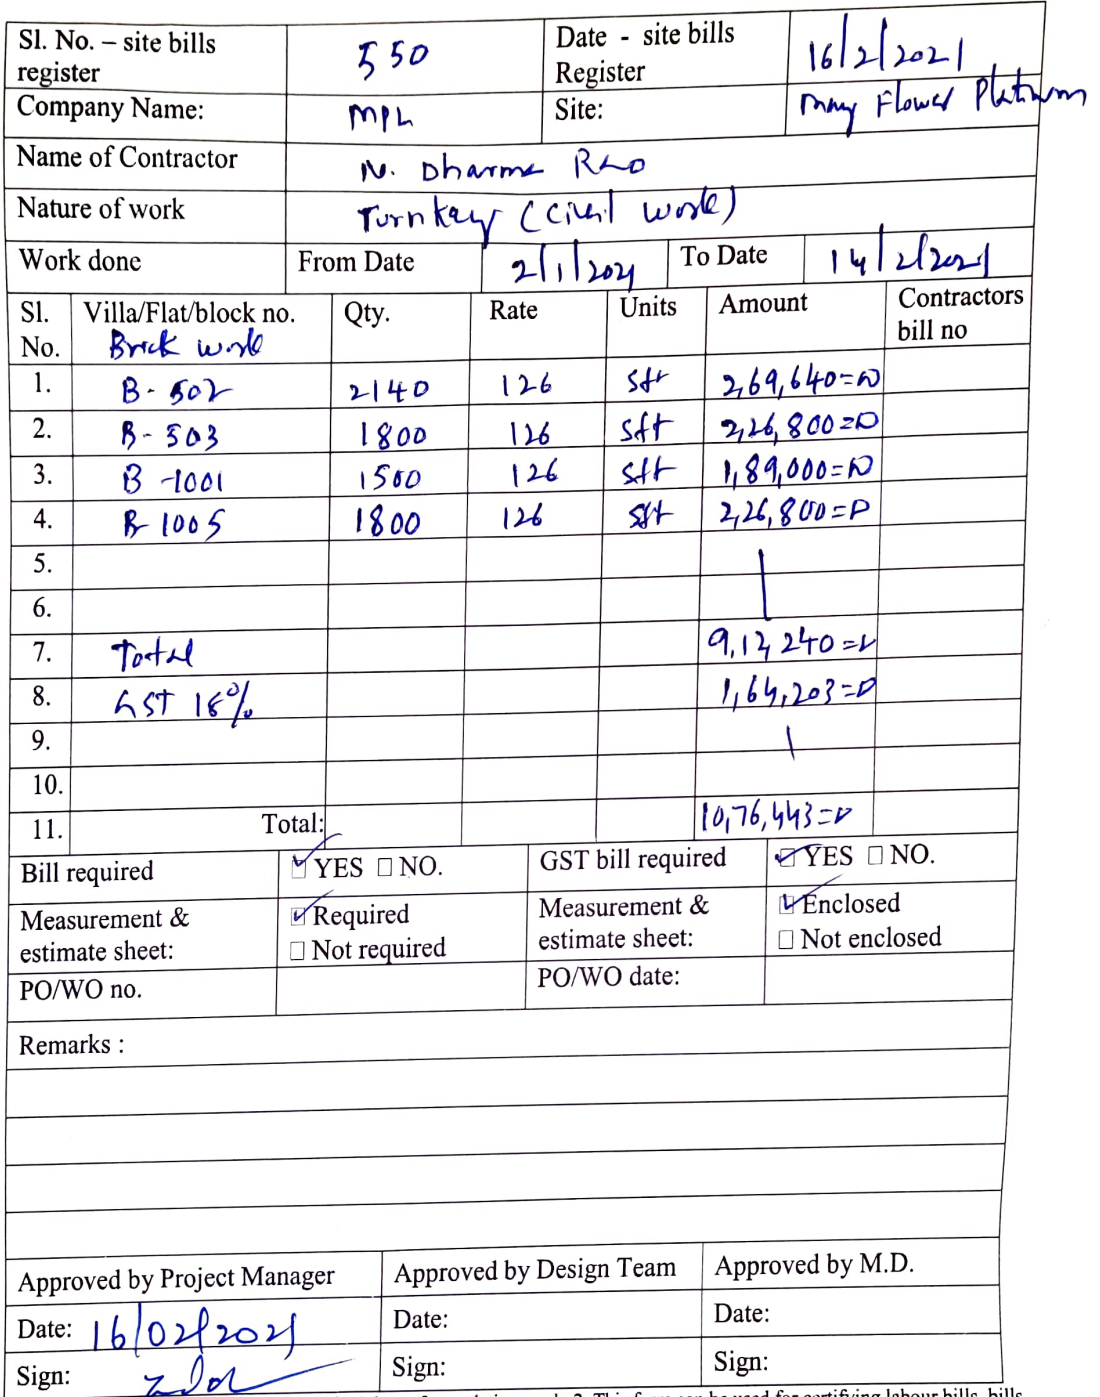 Sl. No. – site bills register 550 Date - site bills Register 16/2/2021
Company Name: MPL Site: May Flower Platinum
Name of Contractor N. Dharma Rao
Nature of work Turnkey (Civil work)
Work done From Date 2/1/2021 To Date 14/2/2021
Sl. No. Villa/Flat/block no. Brick work Qty. Rate Units Amount Contractors bill no
1. B-502 2140 126 sft 2,69,640=00
2. B-503 1800 126 sft 2,26,800=00
3. B-1001 1500 126 sft 1,89,000=00
4. B-1005 1800 126 sft 2,26,800=00
5.
6.
7. Total 9,12,240=00
8. GST 18% 1,64,203=00
9.
10.
11. Total: 10,76,443=00
Bill required ☑ YES ☐ NO. GST bill required ☑ YES ☐ NO.
Measurement & estimate sheet: ☑ Required ☐ Not required Measurement & estimate sheet: ☑ Enclosed ☐ Not enclosed
PO/WO no. PO/WO date:
Remarks :
Approved by Project Manager Approved by Design Team Approved by M.D.
Date: 16/02/2021 Date: Date:
Sign: Sign: Sign: